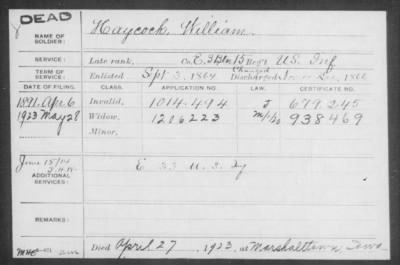 DEAD
NAME OF SOLDIER:
Haycock, William.
SERVICE:
Late rank, Co. E, 3 Btn 15 Reg't U.S. Inf
TERM OF SERVICE:
Enlisted Sept 3, 1864 Discharged
DATE OF FILING. CLASS. APPLICATION NO. LAW. CERTIFICATE NO.
1891 Apr 6 Invalid, 1014.494 J 679245
1923 May 28 Widow, 1206223 938469
Minor.
ADDITIONAL SERVICES:
E 33 U.S. Inf
REMARKS:
Died April 27, 1923, at Marshalltown, Iowa